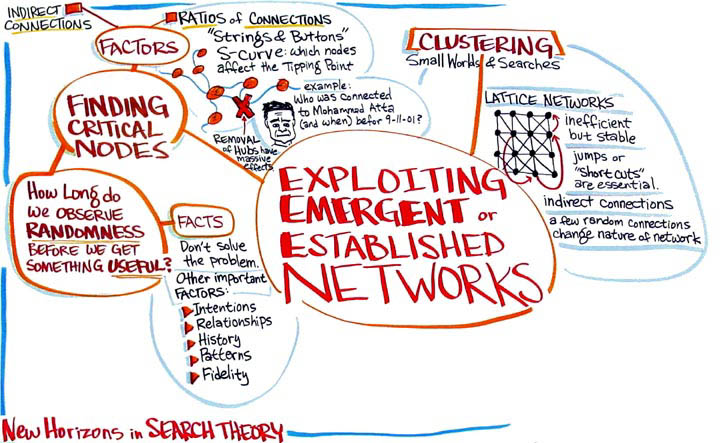 INDIRECT
CONNECTIONS
FACTORS
RATIOS of CONNECTIONS
"Strings & Buttons"
S-curve: which nodes
affect the Tipping Point
example:
Who was connected
to Mohammed Atta
(and when) befor 9-11-01?
REMOVAL
of HUBS have
massive
effects
FINDING
CRITICAL
NODES
How Long do
we OBSERVE
RANDOMNESS
BEFORE WE GET
SOMETHING USEFUL?
FACTS
Don't solve
the problem.
Other important
FACTORS:
Intentions
Relationships
History
Patterns
Fidelity
EXPLOITING
EMERGENT or
ESTABLISHED
NETWORKS
CLUSTERING
Small Worlds & Searches
LATTICE NETWORKS
inefficient
but stable
jumps or
"short cuts"
are essential.
indirect connections
a few random connections
change nature of network
New Horizons in SEARCH THEORY